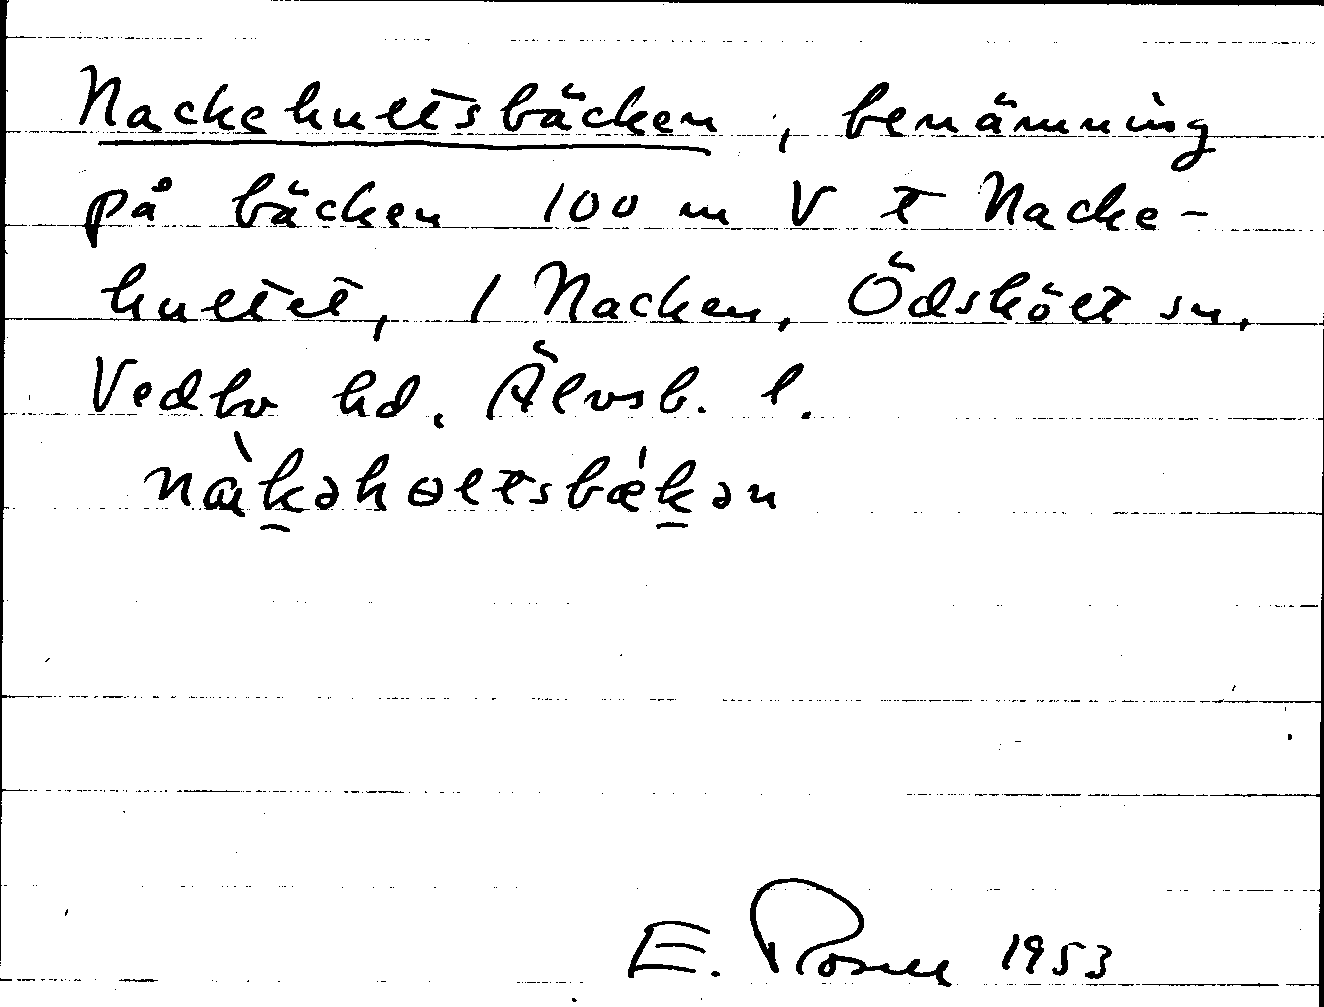 Nackehultsbäcken, benämning
på bäcken 100 m V t Nacke-
hultet, 1 Nacken, Ödskölt sn,
Vedbo hd. Älvsb. l.
nàk̠əhɵltsbæ̍k̠ən
E. 1953